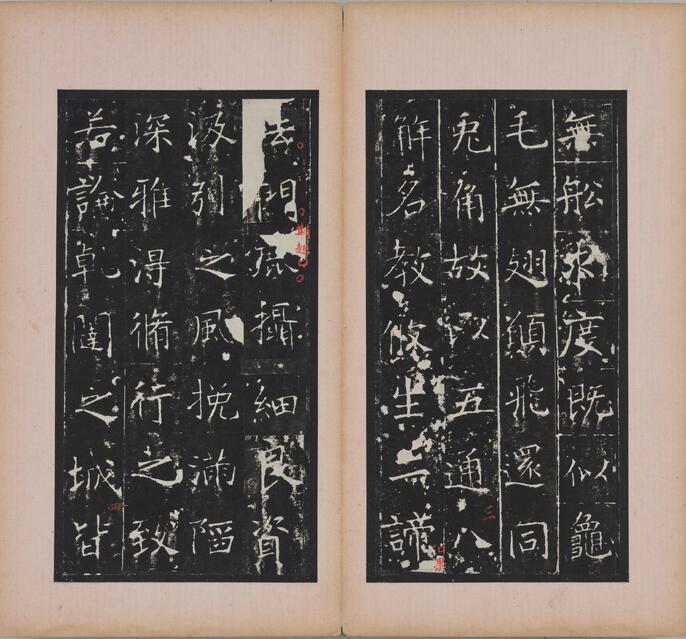 無船求度既似龜
毛無翅願飛還同
兎角故以五通八
解名教攸生二諦
法門麁攝細良資
汲引之風挽滿陷
深雅淂脩行之致
若論乹闥之城皆
三